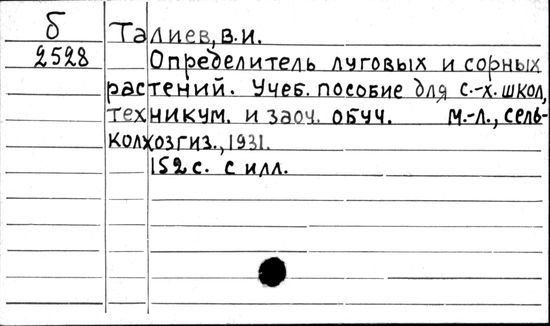 б Талиев, В.И.
2528 Определитель луговых и сорных
растений. Учеб. пособие для с.-х. школ,
техникум. и заоч. обуч. М.-Л., Сель-
колхозгиз., 1931.
152 с. с илл.